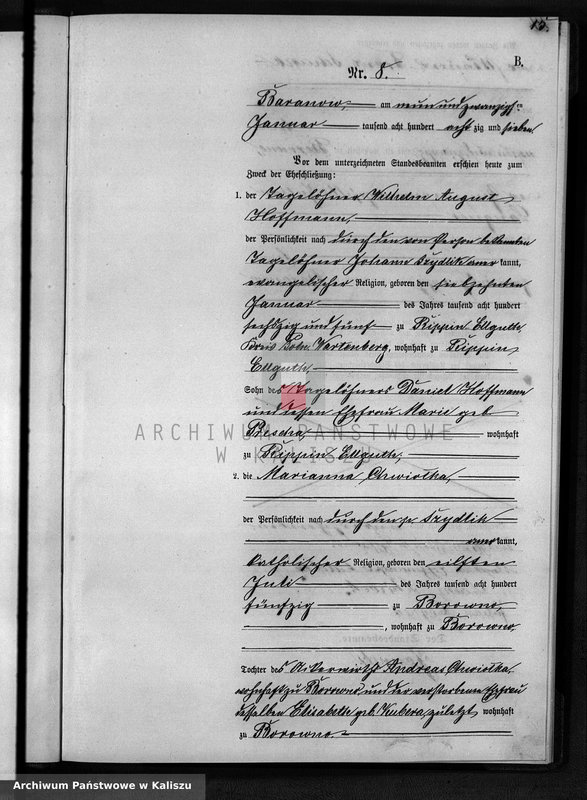 15.
B.
Nr. 8.
Baranow, am neun und zwanzigsten
Januar tausend acht hundert achtzig und sieben
Vor dem unterzeichneten Standesbeamten erschien heute zum
Zweck der Eheschließung:
1. der Tagelöhner Wilhelm August
Hoffmann,
der Persönlichkeit nach durch den von Person bekannten
Tagelöhner Johann Szydlik anerkannt,
evangelischer Religion, geboren den siebzehnten
Januar des Jahres tausend acht hundert
sechszig und fünf zu Rippin Ellguth,
Kreis Poln. Wartenberg, wohnhaft zu Rippin
Ellguth
Sohn des Tagelöhners Daniel Hoffmann
und dessen Ehefrau Marie geb
wohnhaft
zu Rippin Ellguth,
2. die Marianna
der Persönlichkeit nach durch den p Szydlik
anerkannt,
katholischer Religion, geboren den eilften
Juli des Jahres tausend acht hundert
fünfzig zu Borowno,
, wohnhaft zu Borowno,
Tochter des Ackerwirths Andreas
wohnhaft zu Borowno und der verstorbenen Ehefrau
desselben Elisabeth geb. Kubera, zuletzt wohnhaft
zu Borowno
ARCHIWUM PAŃSTWOWE
W KALISZU
Archiwum Państwowe w Kaliszu